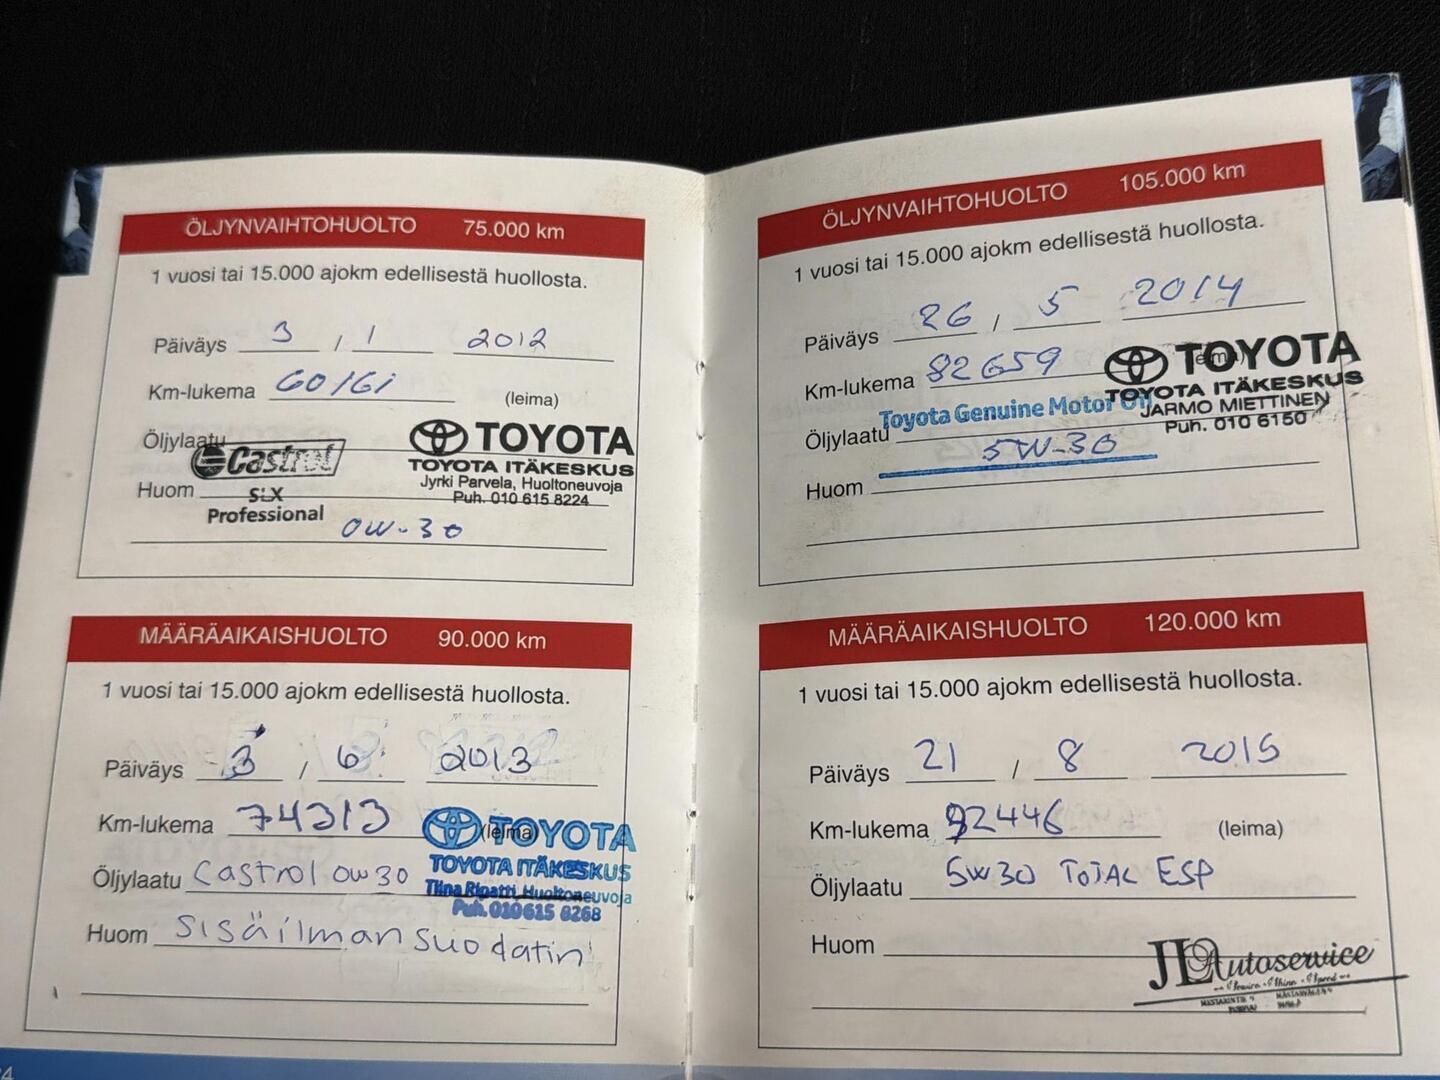 ÖLJYNVAIHTOHUOLTO 75.000 km
1 vuosi tai 15.000 ajokm edellisestä huollosta.
Päiväys 3 / 1 2012
Km-lukema 60161
(leima)
Öljylaatu
Castrol
TOYOTA
TOYOTA ITÄKESKUS
Jyrki Parvela, Huoltoneuvoja
Puh. 010 615 8224
Huom
SLX
Professional
0W-30
MÄÄRÄAIKAISHUOLTO 90.000 km
1 vuosi tai 15.000 ajokm edellisestä huollosta.
Päiväys 3 / 6 2013
Km-lukema 74313
(leima)
TOYOTA
TOYOTA ITÄKESKUS
Tiina Ripatti, Huoltoneuvoja
Puh. 010 615 8268
Öljylaatu Castrol 0W30
Huom sisäilman suodatin
24
ÖLJYNVAIHTOHUOLTO 105.000 km
1 vuosi tai 15.000 ajokm edellisestä huollosta.
Päiväys 26 / 5 2014
Km-lukema 82659
(leima)
TOYOTA
TOYOTA ITÄKESKUS
JARMO MIETTINEN
Puh. 010 6150
Toyota Genuine Motor Oil
Öljylaatu 5W-30
Huom
MÄÄRÄAIKAISHUOLTO 120.000 km
1 vuosi tai 15.000 ajokm edellisestä huollosta.
Päiväys 21 / 8 2015
Km-lukema 92446
(leima)
Öljylaatu 5W30 TOTAL ESP
Huom
JL Autoservice